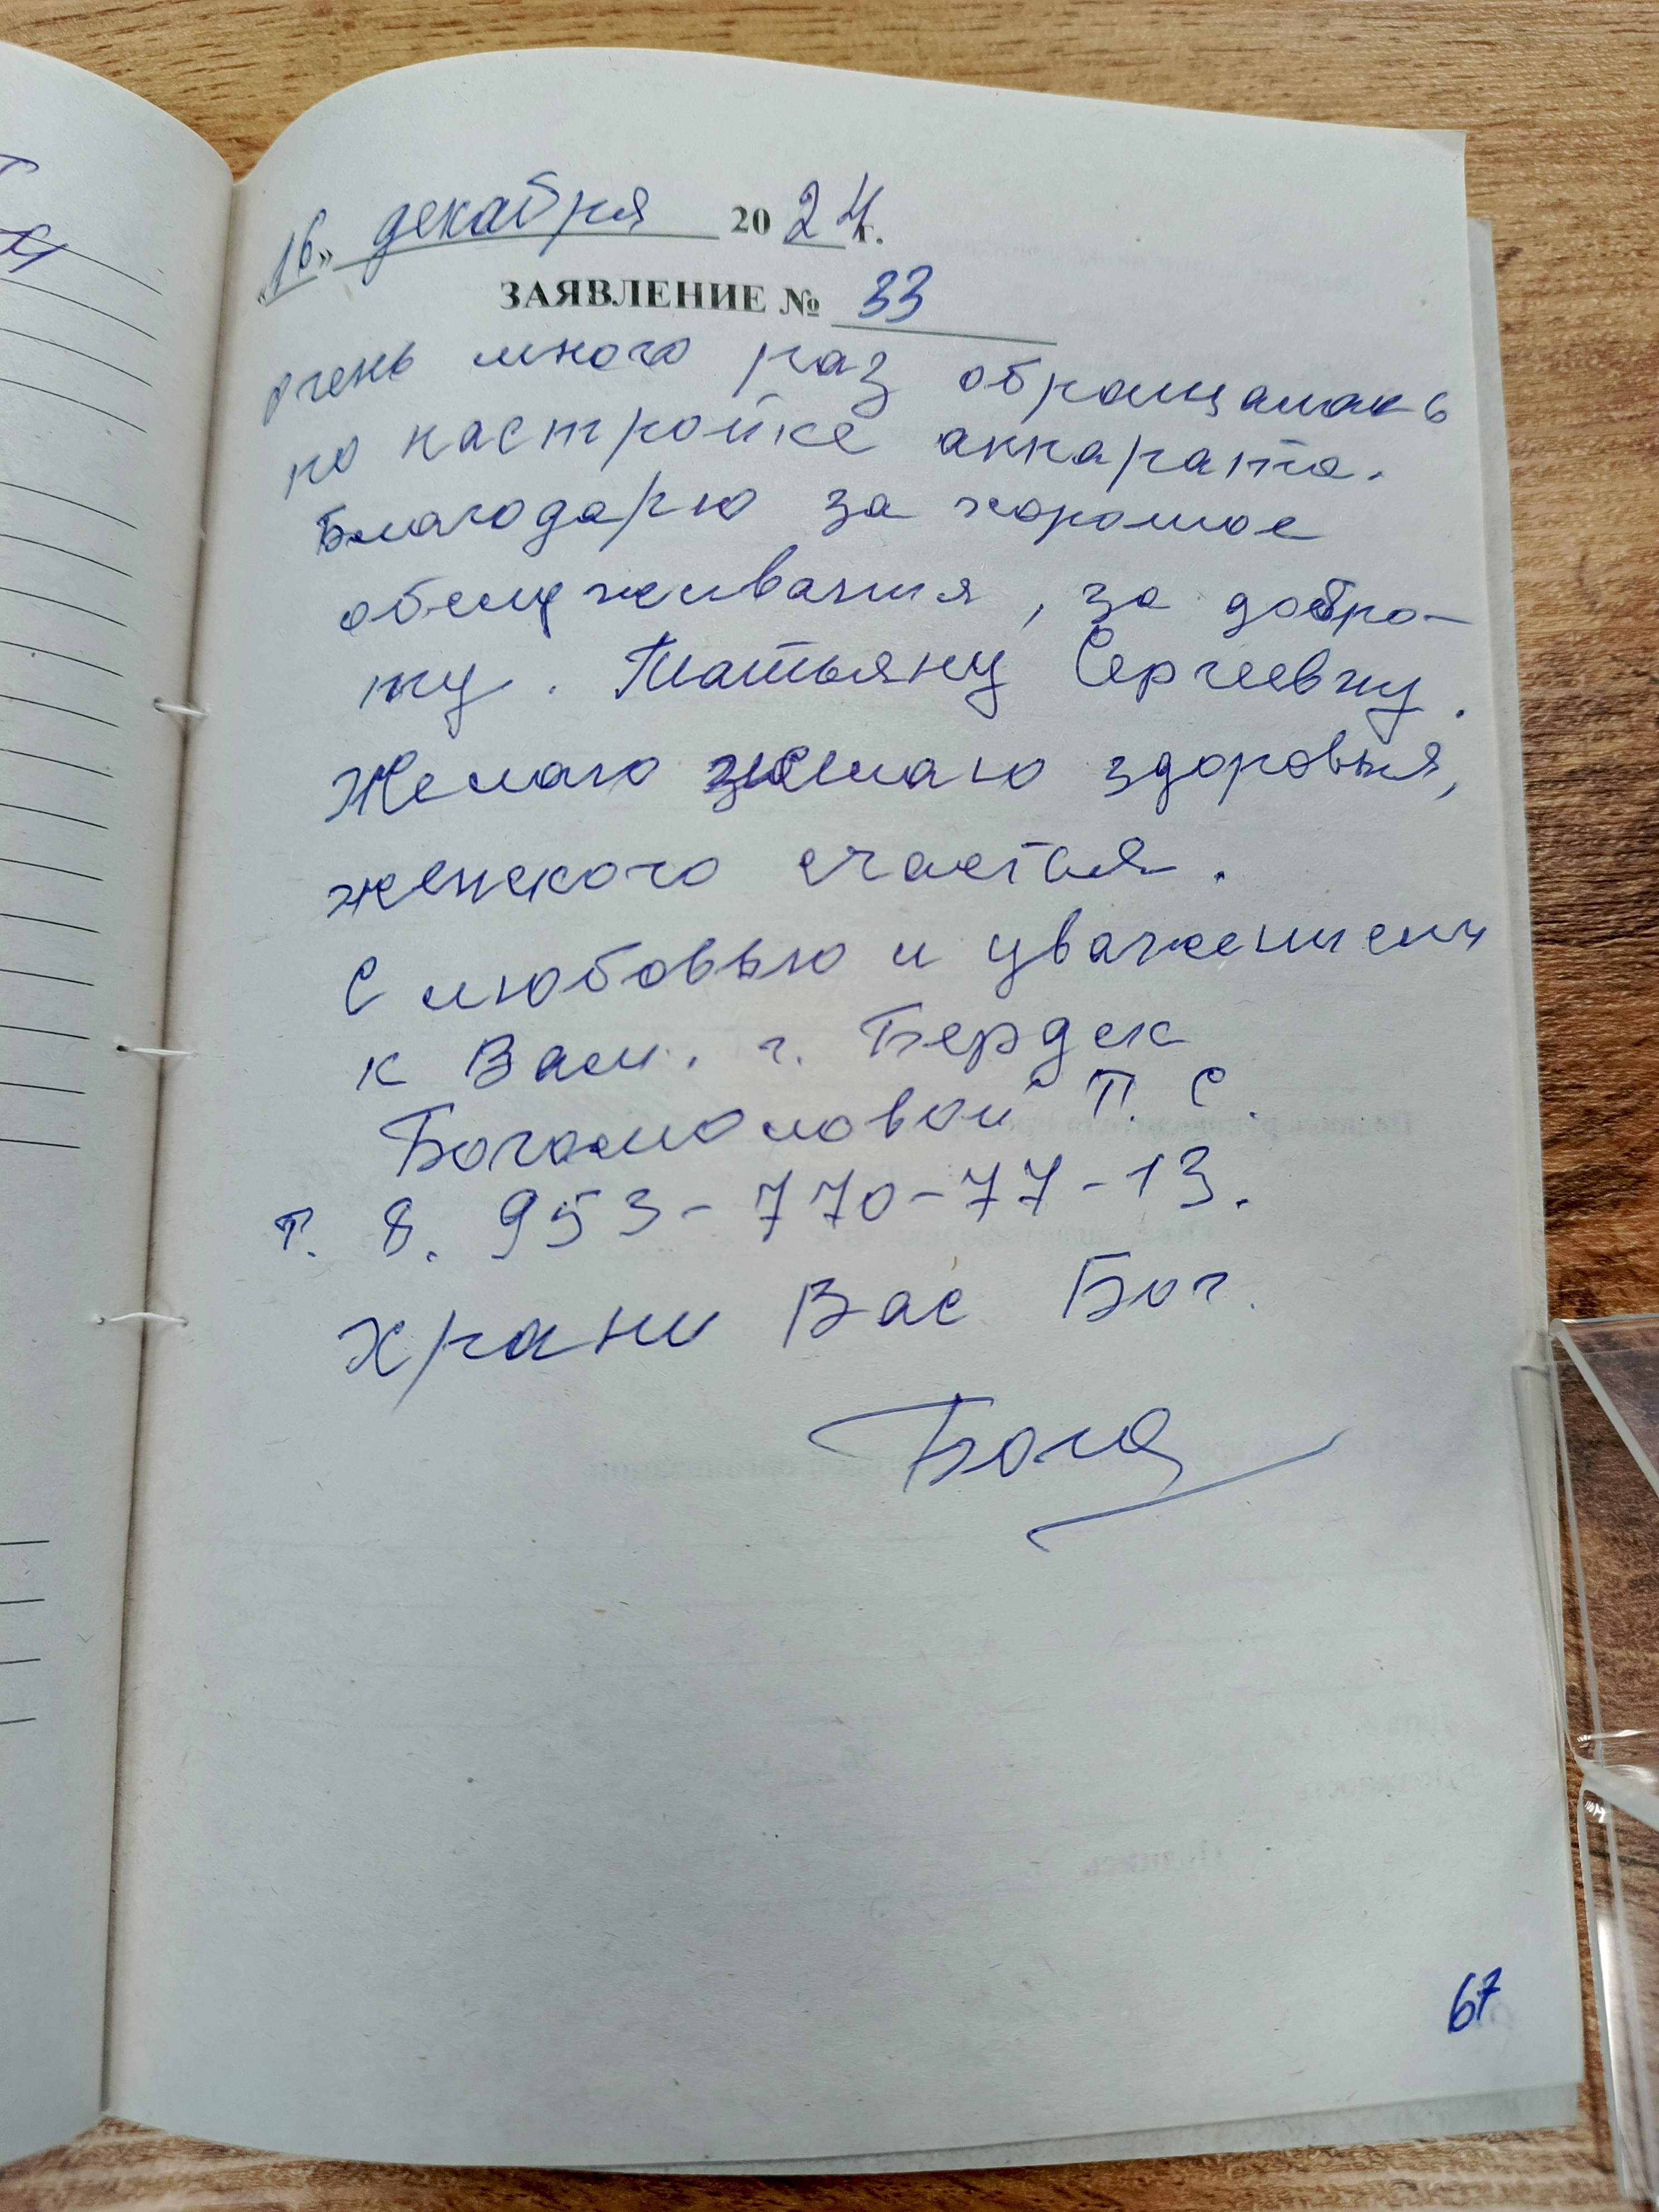 «16» декабря 2024г.
ЗАЯВЛЕНИЕ № 33
Очень много раз обращалась
по настройке аппарата.
Благодарю за хорошое
обслуживания, за добро-
ту. Татьяну Сергеевну.
Желаю желаю здоровья,
женского счастья.
С любовью и уважением
к Вам. г. Бердск
Богомоловой Т. С.
т. 8. 953-770-77-13.
Храни Вас Бог.
67